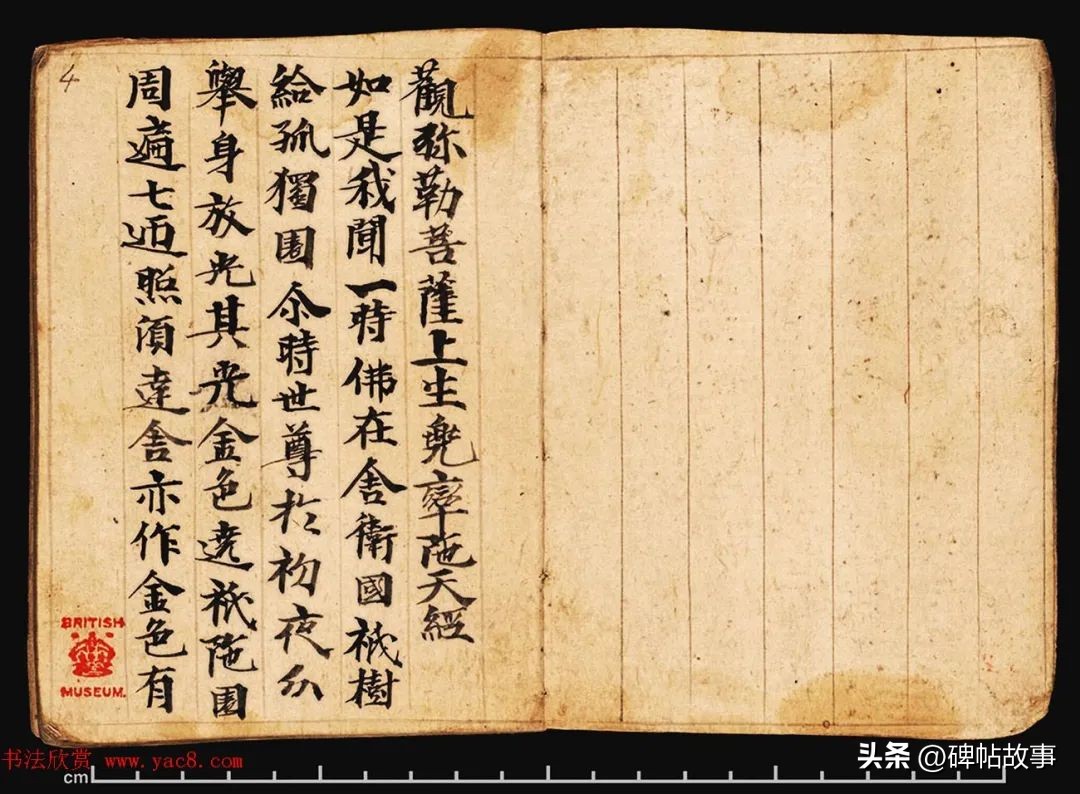 觀弥勒菩薩上生兜率陁天經
如是我聞一時佛在舍衛國祇樹
給孤獨園尒時世尊於初夜分
舉身放光其光金色遶祇陁園
周遍七迊照須達舍亦作金色有
4
BRITISH
MUSEUM.
书法欣赏 www.yac8.com
cm
头条 @碑帖故事